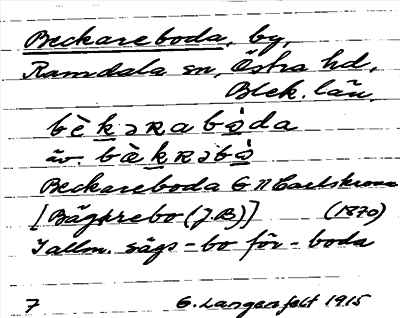 Beckareboda, by,
Ramdala sn, Östra hd,
Blek. län.
bèkəraboda
äv. bækrəbo
Beckareboda G II Carlskrona
[Bägkrebo (J.B)] (1870)
I allm. sägs -bo för -boda
7 G. Langenfelt 1915